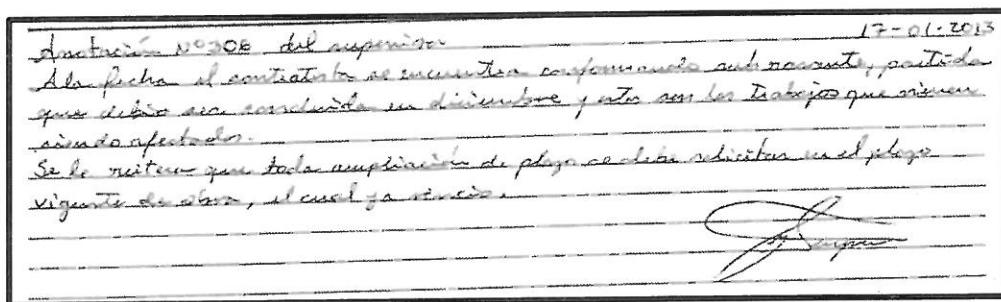 Anotación N°306 del supervisor 17-01-2013
A la fecha el contratista se encuentra conformando sub rasante, partida
que debio ser concluida en diciembre y estos son los trabajos que vienen
siendo afectados.
Se le reitera que toda ampliación de plazo se debe solicitar en el plazo
vigente de obra, el cual ya vencio.